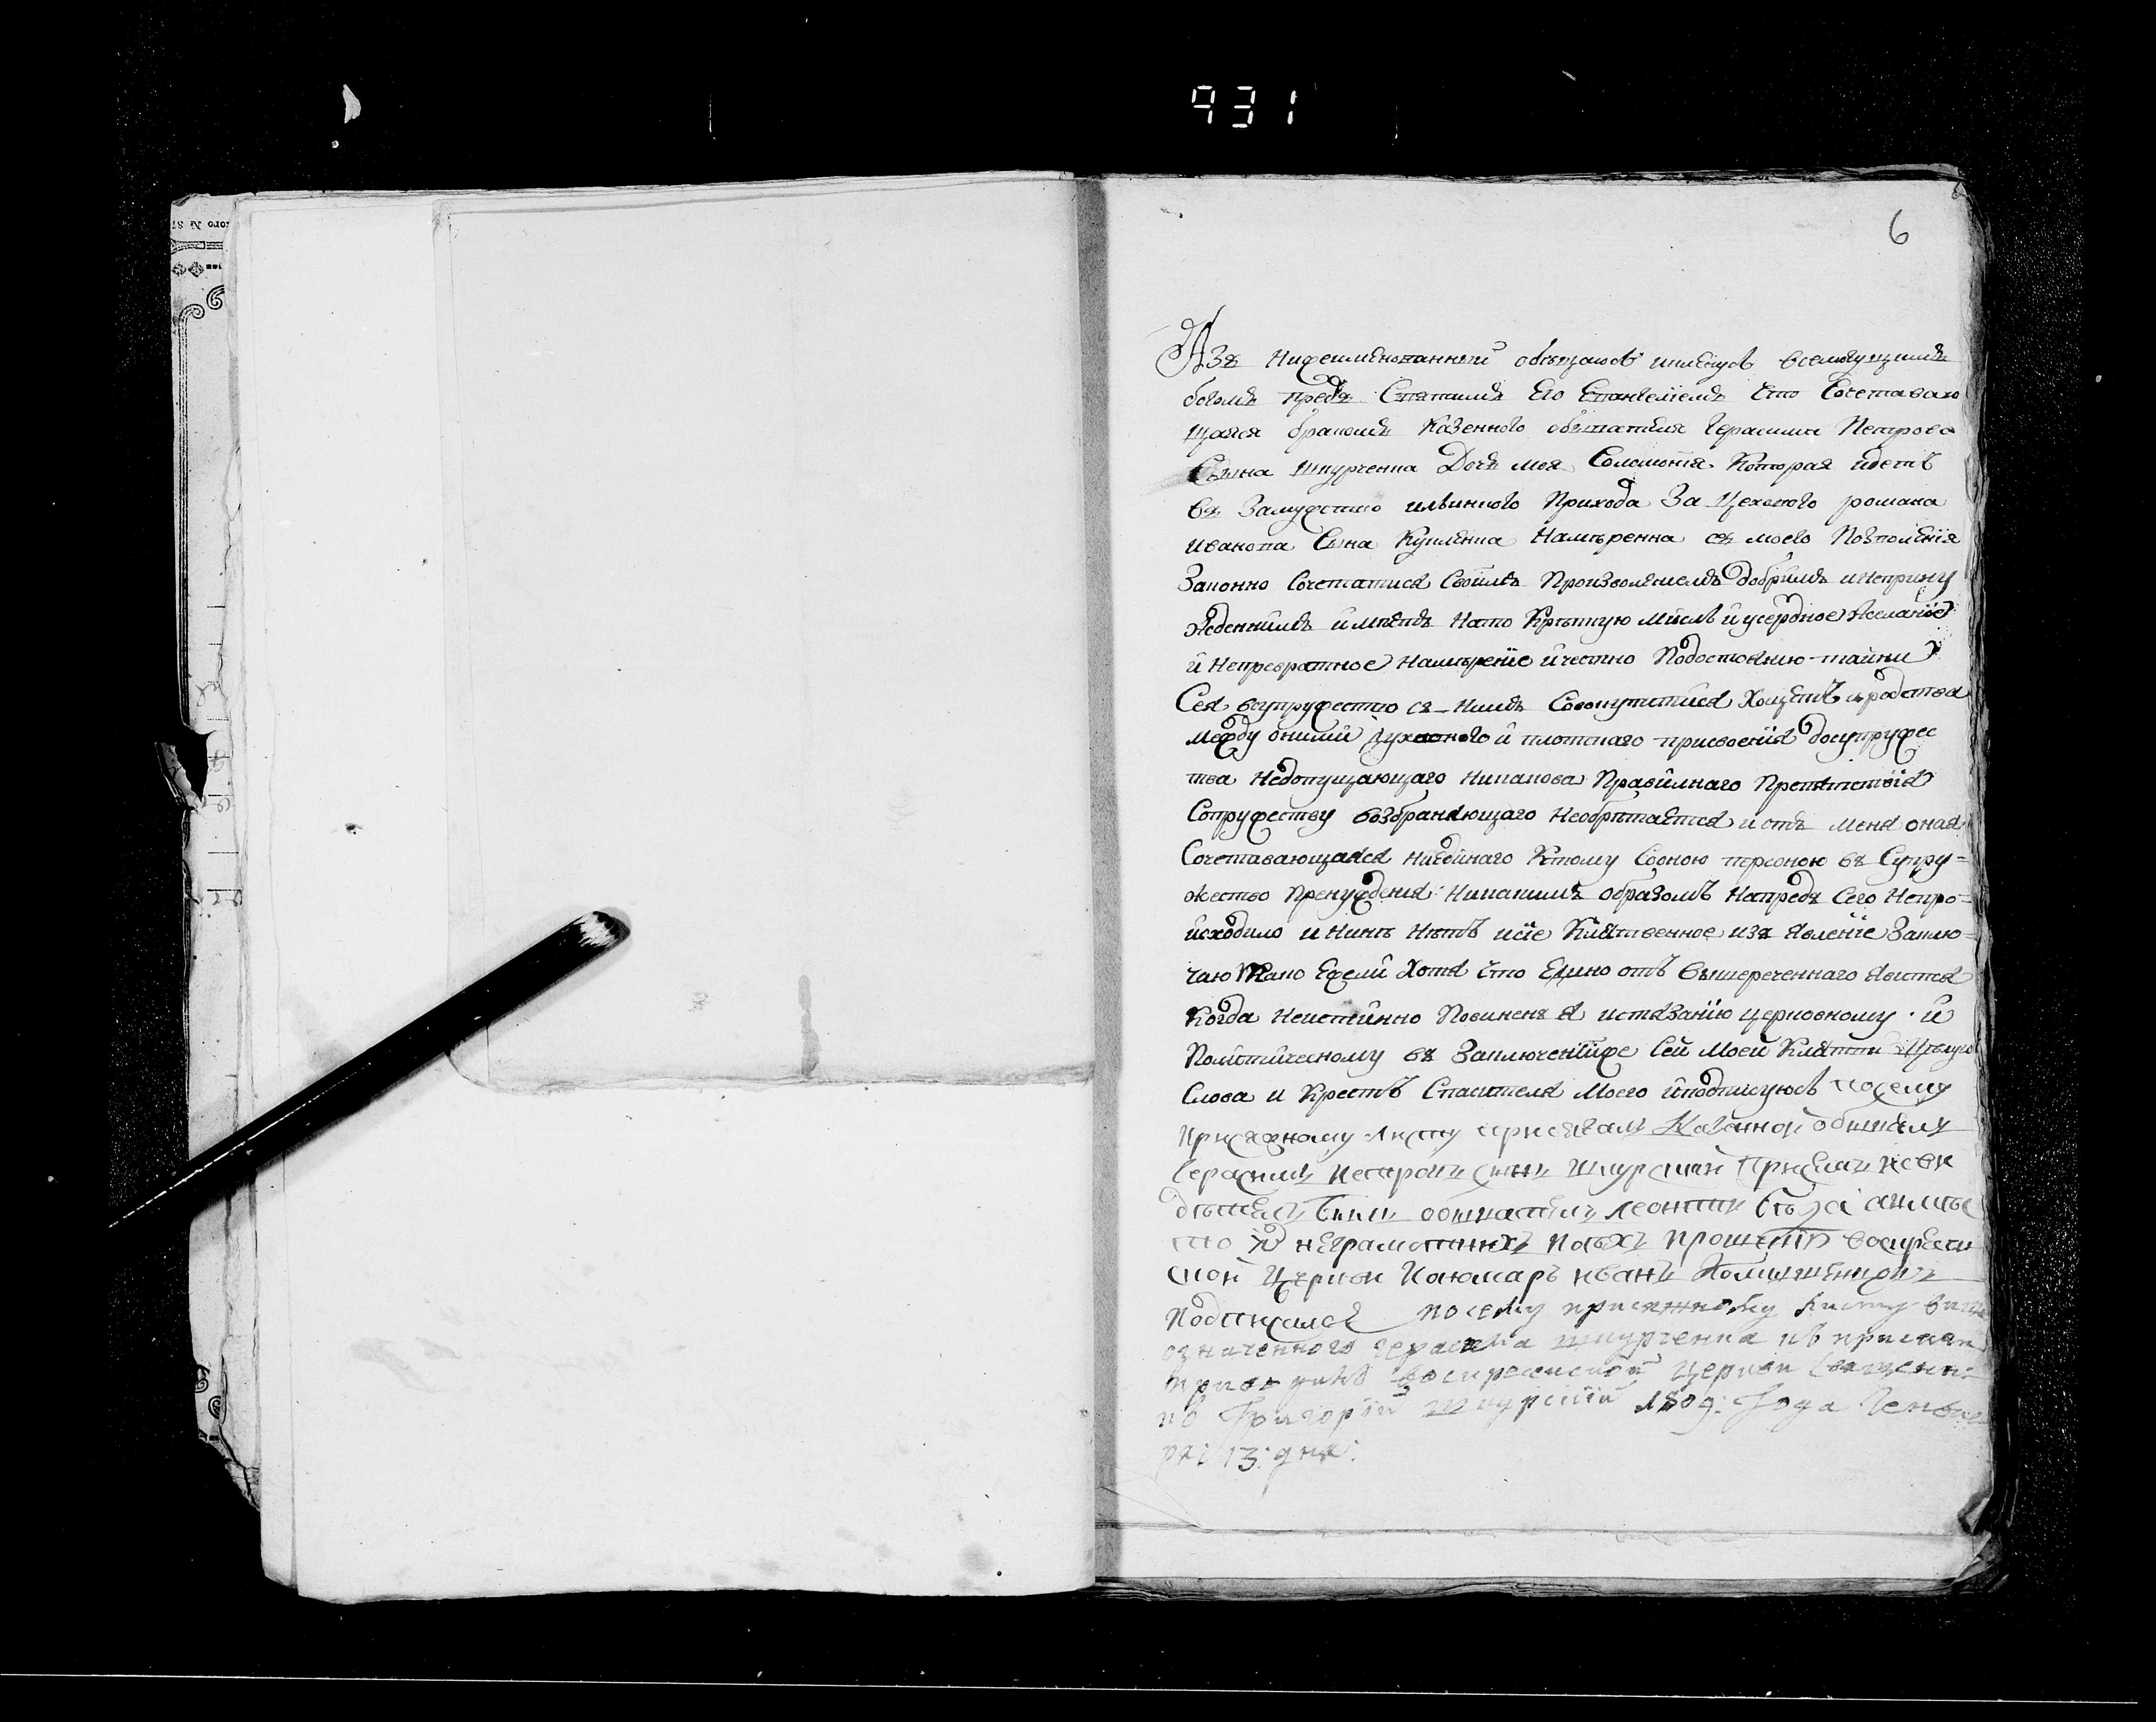 931
6
Азъ нижеименованный обѣщаюсь иклєнусь всемогущимъ
богомъ предъ Святимъ Его Євангелиемъ Что Сочетаваю
щаяся бракомъ Казенного обывателя Герасима Петрова
Сына Шкурченка Дочь моя Соломонїя Которая идетъ
въ Замужство ильинского Прихода За Цехового романа
Иванова Сына Купленка Намѣренна съ моего Позволенїя
Законно Сочетатися Своимъ Произволениемъ добримъ инеприну
жденнимъ имѣетъ Нато Крѣпкую мисль и усердное желанїе
й Непревратное намѣренїе ичестно Подостоянию тайни
Сея всупружество съ ними Совокупитися Хощетъ иродства
между оними духовного и плотскаго присвоенїя досупружес
тва Недопущающаго Никакова Правилнаго Препятствїя
Сопружеству возбраняющаго Необрѣтается и отъ меня оная
Сочетавающаяся ниединаго Ктому Сооною персоною въ Супру=
жество Пренуждения Никакимъ образомъ Напредъ Сего Непро=
исходило и Нинѣ Нѣтъ исїе Клятвенное изъ явленїе Заклю=
чаю Тако Ежели Хотя Что Едино отъ вышереченнаго явится
Когда Неистинно Повиненъ я истязанїю церковному и
Политическому въ Заключенїиже Сей Моей Клятви Цѣлую
Слова и Крестъ Спасителя Моего иподписуюсь посему
Присяжному листу присягалъ Казенной обыватель
Герасимъ Петровъ синъ Шкурченко
обыватель леонтий
неграмотнихъ поихъ прошению воскресен
ской Церкви Паномарь иванъ
Подписался посему присяжному листу више
означенного герасима шкурченка къ присяги
приводилъ воскресенской церкви Священни
къ Григорїй Шкурскїй 1809: Года Генва
ря: 13: дня: